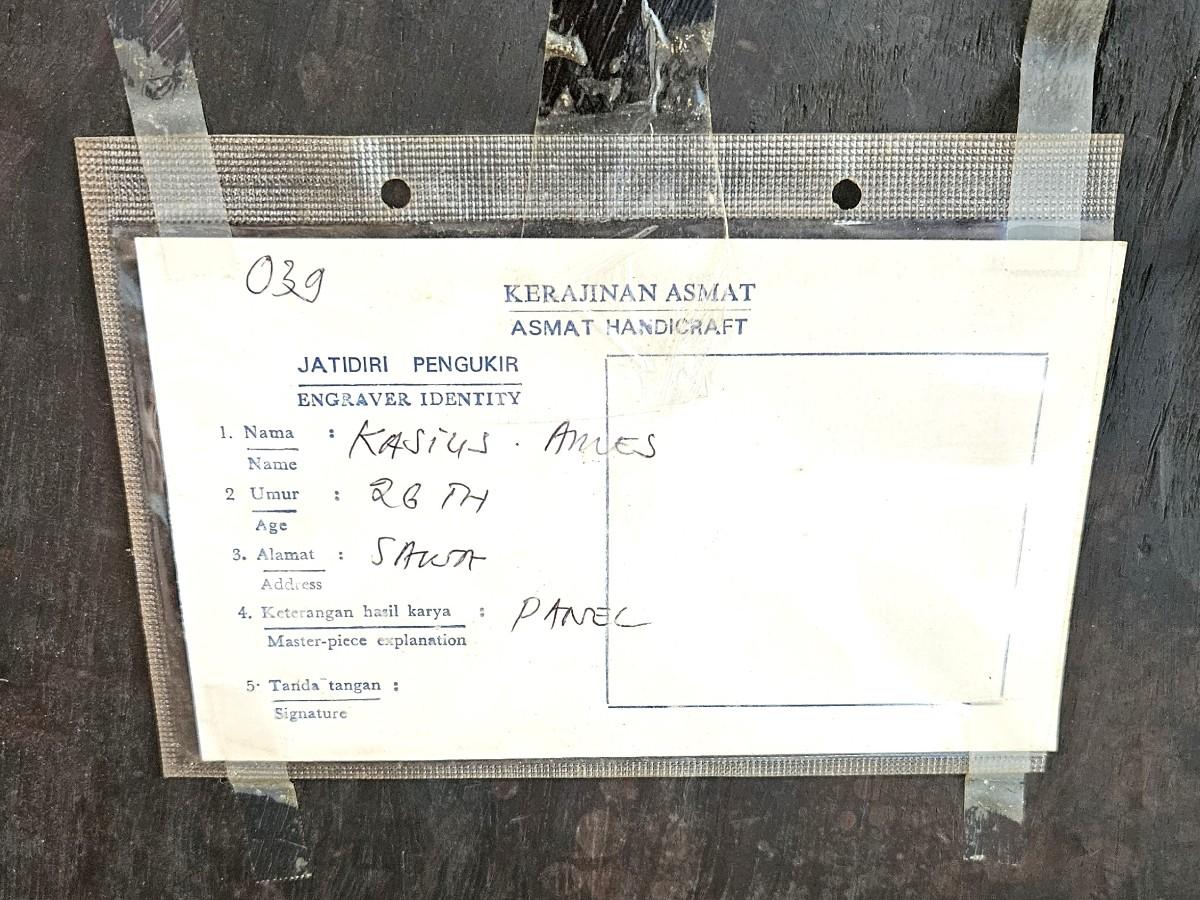 039
KERAJINAN ASMAT
ASMAT HANDICRAFT
JATIDIRI PENGUKIR
ENGRAVER IDENTITY
1. Nama : KASIUS .
Name
2 Umur : 26 TH
Age
3. Alamat : SAWA
Address
4. Keterangan hasil karya : PANEL
Master-piece explanation
5. Tanda tangan :
Signature